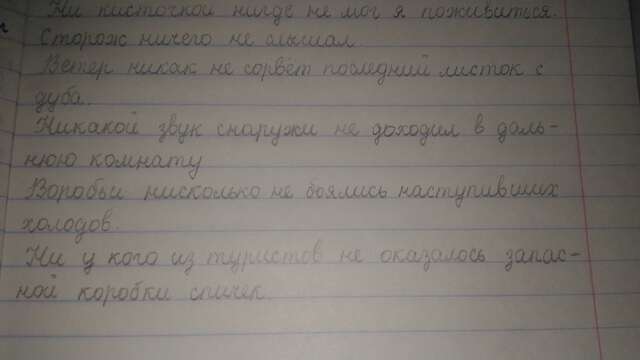 Ни кисточкой нигде не мог я поживиться.
Сторож ничего не слышал
Ветер никак не сорвёт последний листок с
дуба.
Никакой звук снаружи не доходил в даль-
нюю комнату
Воробьи нисколько не боялись наступивших
холодов.
Ни у кого из туристов не оказалось запас-
ной коробки спичек